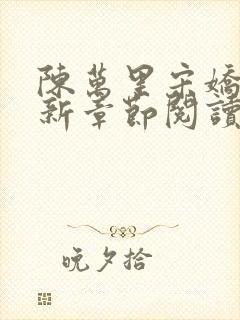 陳萬里宋嬌
新章節閱讀
晚夕拾